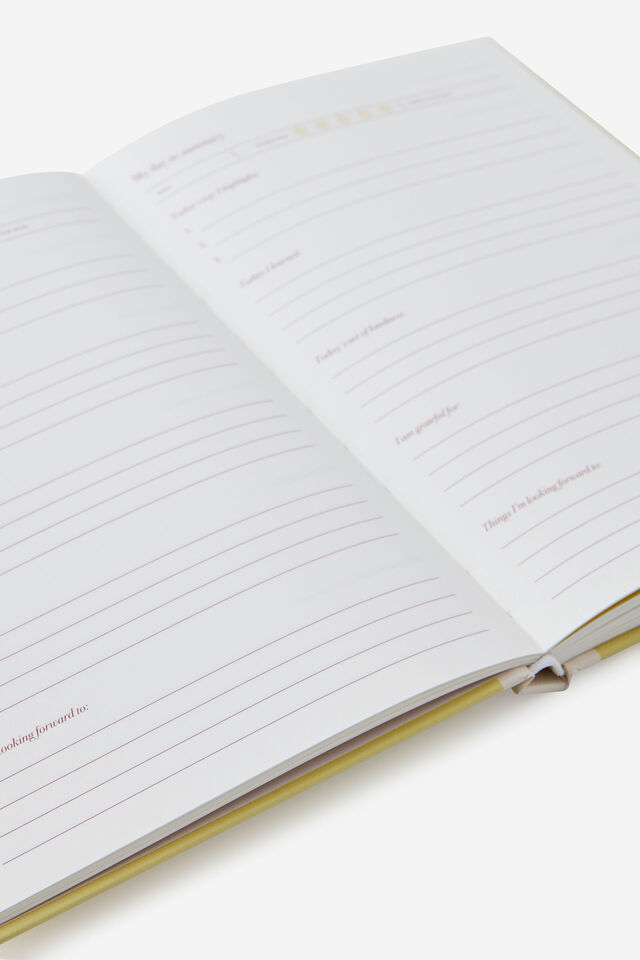 looking forward to:
My day in summary
Today's top 3 highlights:
1.
2.
3.
Today I learned:
Today's act of kindness:
I am grateful for:
Things I'm looking forward to: